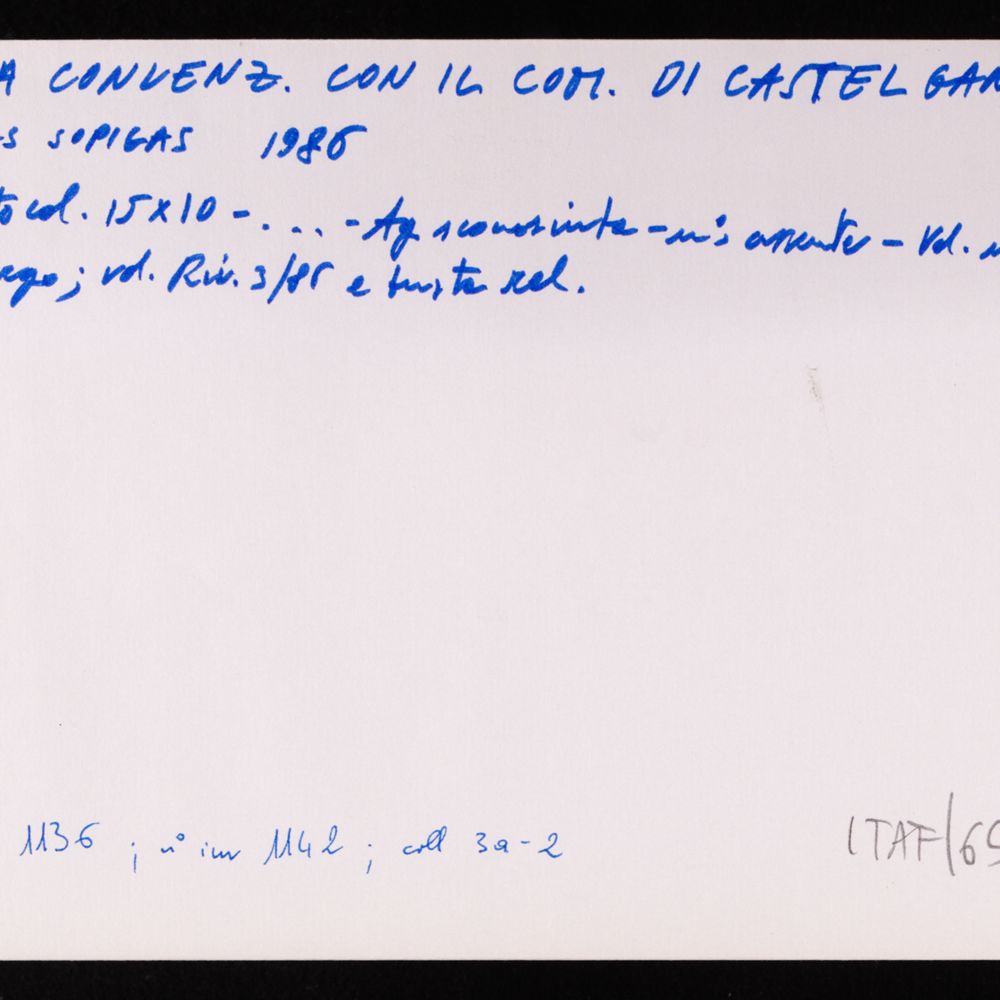 A CONVENZ. CON IL COM. DI CASTEL GAR
S SOPIGAS 1986
to col. 15x10 - . . . - Ag sconosciuta - n°; assente - Vd.
; vd. Riv. 3/85 e busta rel.
1136 ; n° inv 1142 ; coll 3a-2
ITAF/65